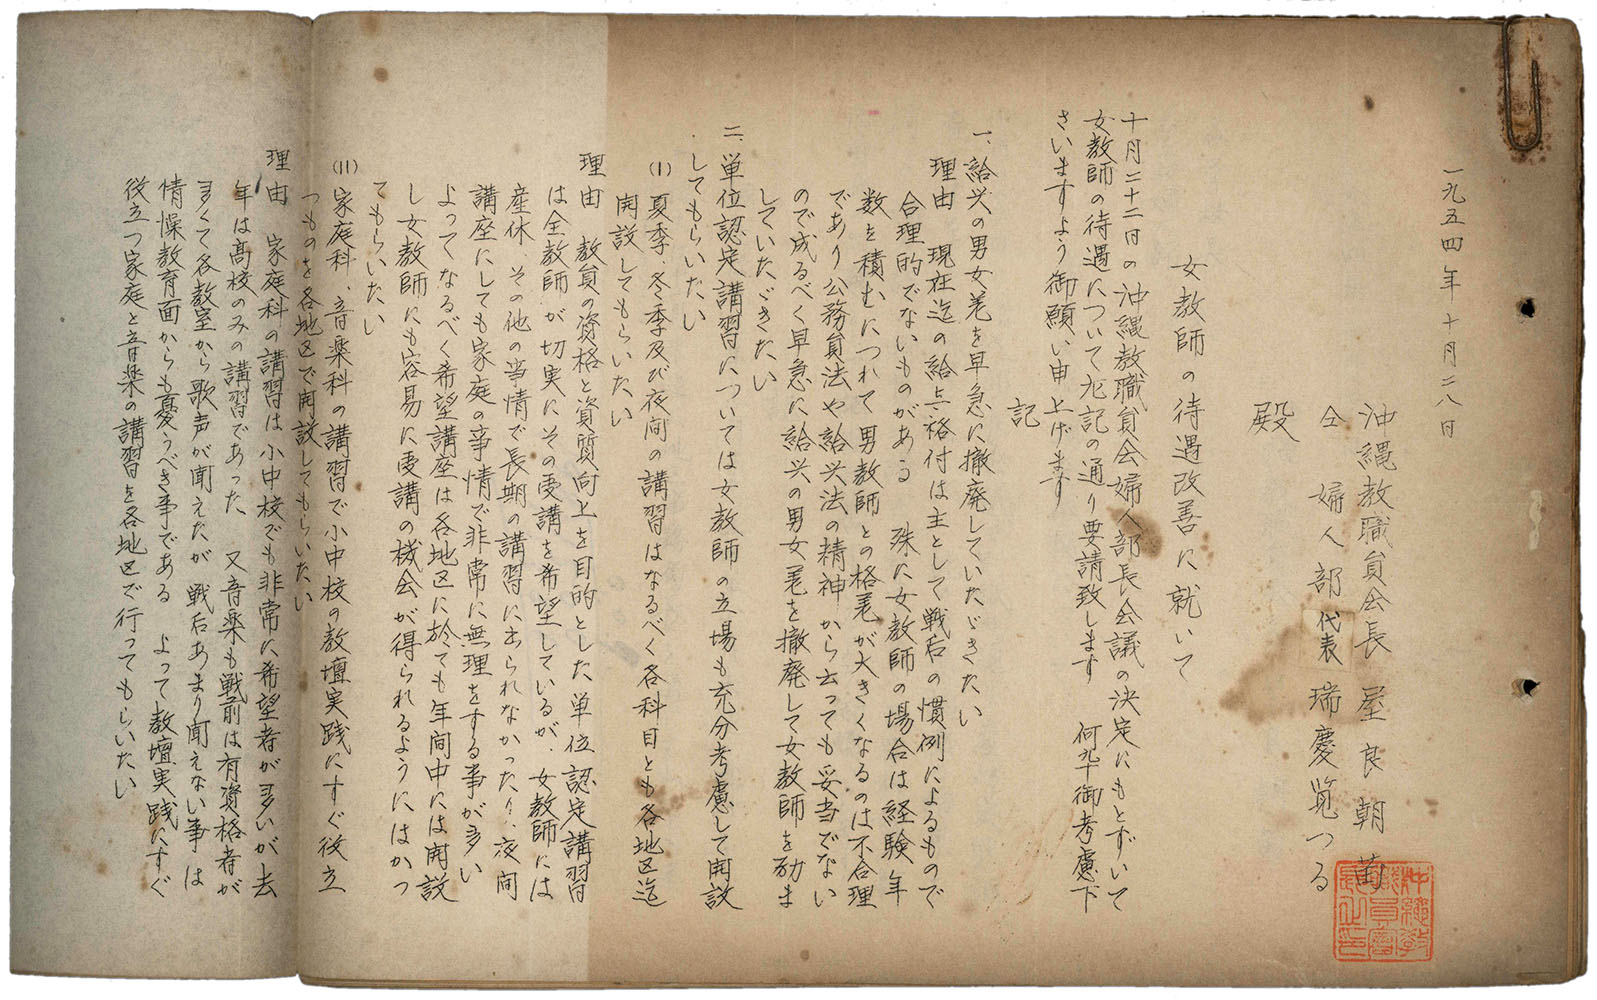 一九五四年十月二八日
沖縄教職員会長 屋良朝苗
仝 婦人部代表 瑞慶覧つる
殿
女教師の待遇改善に就いて
十月二十二日の沖縄教職員会婦人部長会議の決定にもとずいて
女教師の待遇について左記の通り要請致します 何卒御考慮下
さいますよう御願い申上げます
記
一、給与の男女差を早急に撤廃していたゞきたい
理由 現在迄の給与格付は主として戦后の慣例によるもので
合理的でないものがある 殊に女教師の場合は経験年
数を積むにつれて男教師との格差が大きくなるのは不合理
であり公務員法や給与法の精神から云っても妥当でない
ので成るべく早急に給与の男女差を撤廃して女教師を励ま
していたゞきたい
二、単位認定講習については女教師の立場も充分考慮して開設
してもらいたい
(I) 夏季、冬季及び夜間の講習はなるべく各科目とも各地区迄
開設してもらいたい
理由 教員の資格と資質向上を目的とした単位認定講習
は全教師が切実にその受講を希望しているが、女教師には
産休、その他の事情で長期の講習に出られなかったり、夜間
講座にしても家庭の事情で非常に無理をする事が多い
よってなるべく希望講座は各地区に於ても年間中には開設
し女教師にも容易に受講の機会が得られるようにはかっ
てもらいたい
(II) 家庭科、音楽科の講習で小中校の教壇実践にすぐ役立
つものを各地区で開設してもらいたい
理由 家庭科の講習は小中校でも非常に希望者が多いが去
年は高校のみの講習であった 又音楽も戦前は有資格者が
多くて各教室から歌声が聞えたが戦后あまり聞えない事は
情操教育面からも憂うべき事である よって教壇実践にすぐ
役立つ家庭と音楽の講習を各地区で行ってもらいたい
沖縄教
職員会
長之印